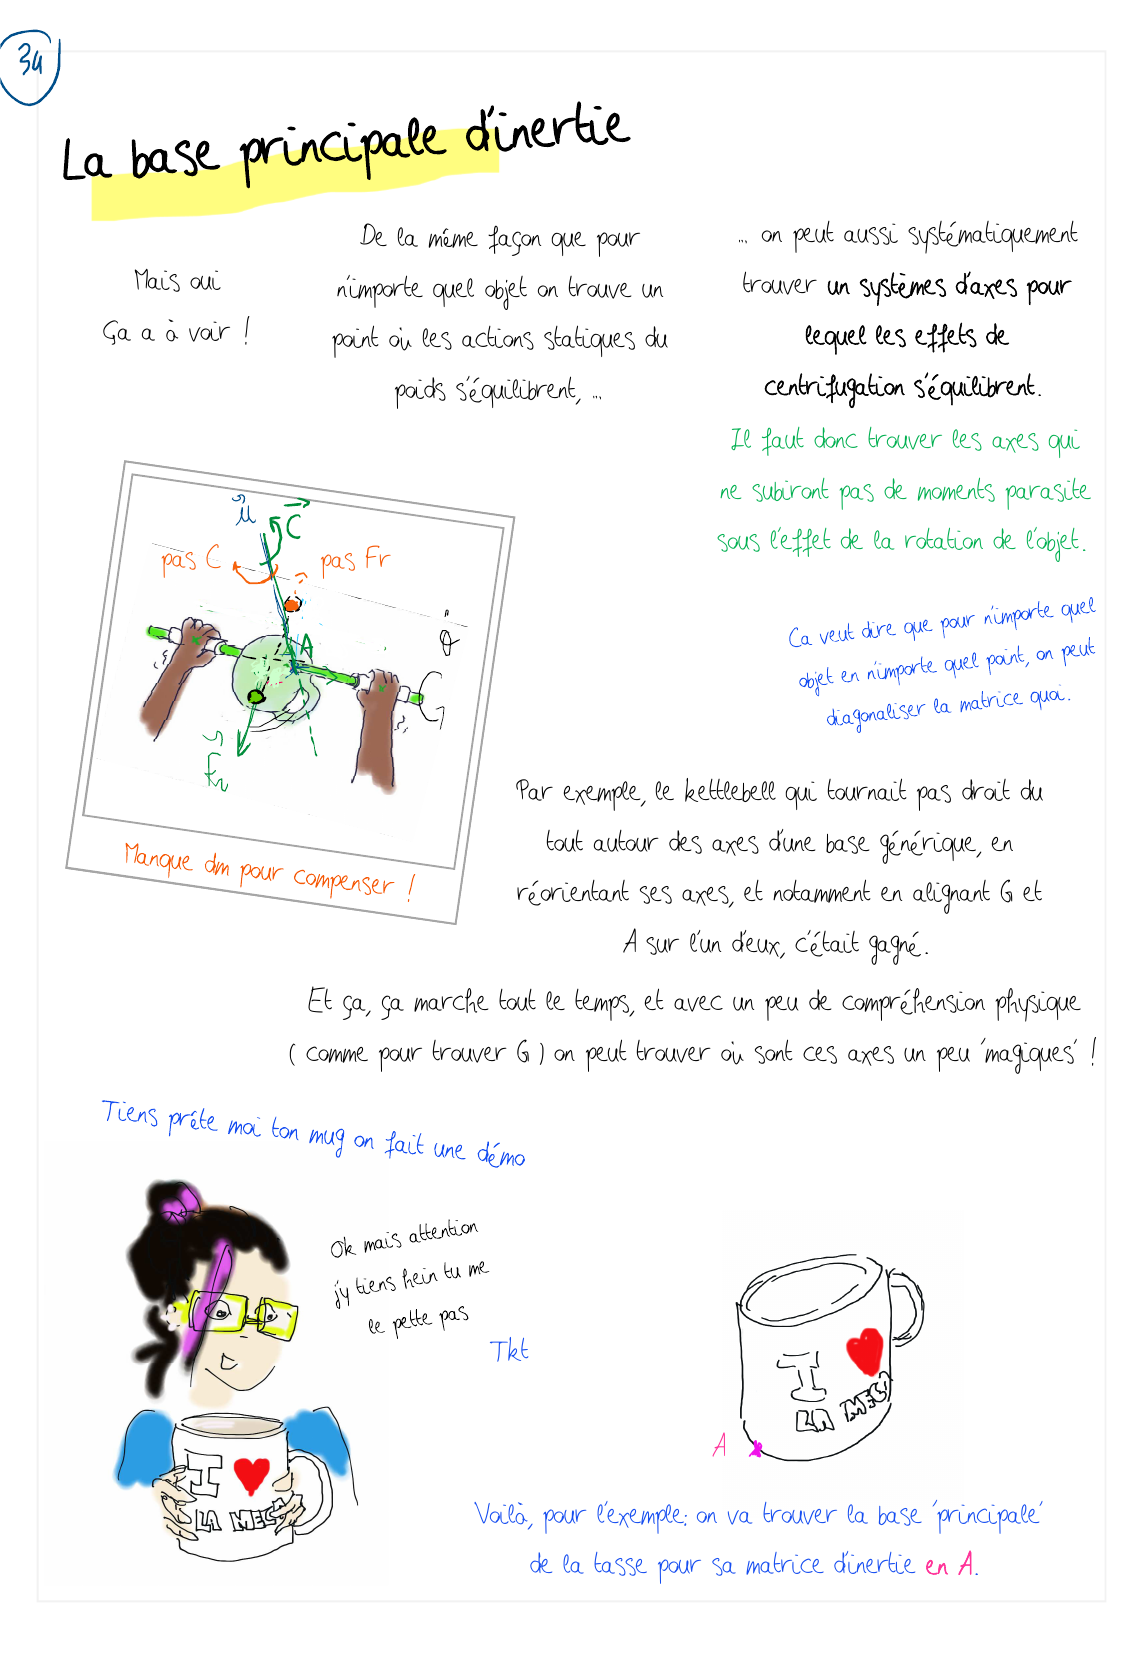 34
La base principale d'inertie
Mais oui
Ça a à voir !
De la même façon que pour
n'importe quel objet on trouve un
point où les actions statiques du
poids s'équilibrent, ...
... on peut aussi systématiquement
trouver un systèmes d'axes pour
lequel les effets de
centrifugation s'équilibrent.
Il faut donc trouver les axes qui
ne subiront pas de moments parasite
sous l'effet de la rotation de l'objet.
u
C
pas C
pas Fr
A
Fr
Manque dm pour compenser !
Ca veut dire que pour n'importe quel
objet en n'importe quel point, on peut
diagonaliser la matrice quoi.
Par exemple, le kettlebell qui tournait pas droit du
tout autour des axes d'une base générique, en
réorientant ses axes, et notamment en alignant G et
A sur l'un d'eux, c'était gagné.
Et ça, ça marche tout le temps, et avec un peu de compréhension physique
( comme pour trouver G ) on peut trouver où sont ces axes un peu 'magiques' !
Tiens prête moi ton mug on fait une démo
Ok mais attention
j'y tiens hein tu me
le pette pas
Tkt
I
LA MECA
I
LA MECA
A
Voilà, pour l'exemple: on va trouver la base 'principale'
de la tasse pour sa matrice d'inertie en A.